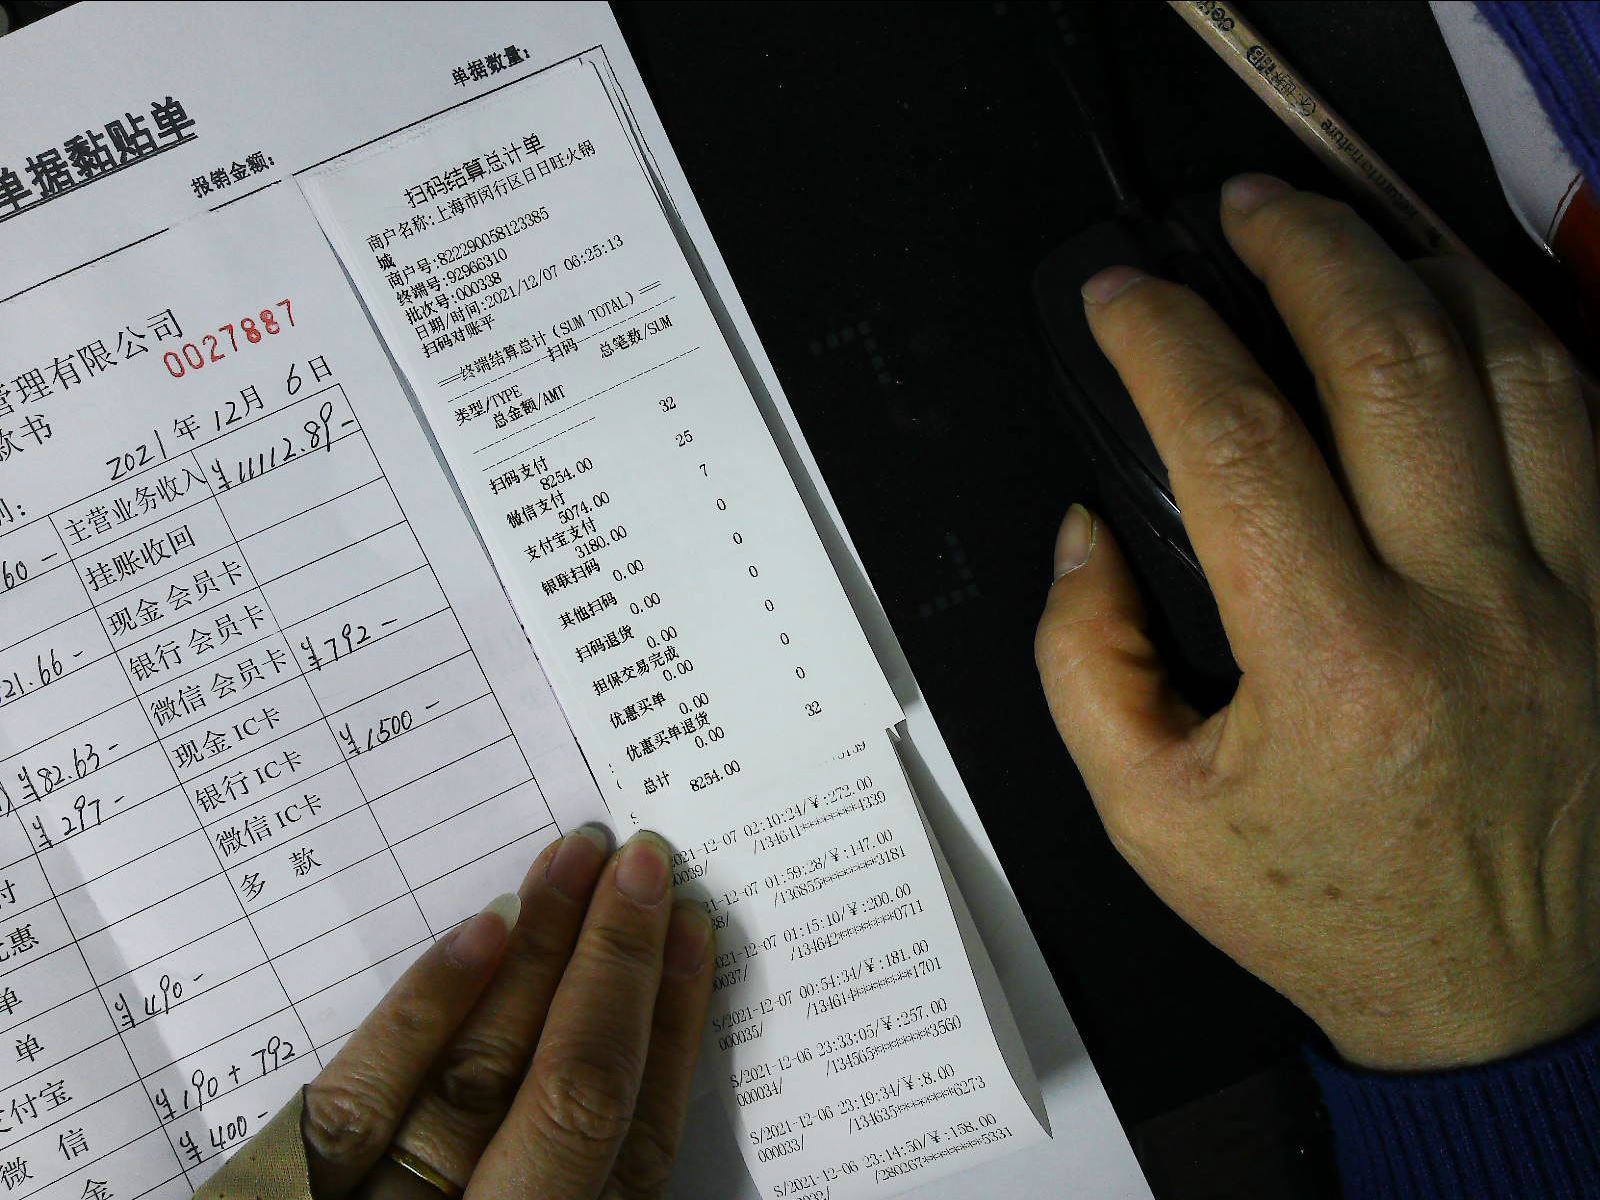 单据数量：
单据黏贴单
报销金额：
管理有限公司
0027887
款书
2021年12月6日
别：
60 -
主营业务收入
¥11112.89-
挂账收回
现金会员卡
21.66 -
银行会员卡
微信会员卡
¥792 -
¥82.63 -
现金IC卡
¥297 -
银行IC卡
¥1500 -
付
微信IC卡
惠
多 款
单
¥490 -
单
支付宝
¥190 + 792
微 信
¥400 -
金
扫码结算总计单
商户名称:上海市闵行区日日旺火锅
城
商户号:822290058123385
终端号:92966310
批次号:000338
日期/时间:2021/12/07 06:25:13
扫码对账平
==终端结算总计(SUM TOTAL)==
扫码
类型/TYPE 总笔数/SUM
总金额/AMT
扫码支付 32
8254.00
微信支付 25
5074.00
支付宝支付 7
3180.00
银联扫码 0
0.00
其他扫码 0
0.00
扫码退货 0
0.00
担保交易完成 0
0.00
优惠买单 0
0.00
优惠买单退货 0
0.00
总计 32
8254.00
2021-12-07 02:10:24/¥:272.00
0039/ /134611*******4339
21-12-07 01:59:28/¥:147.00
38/ /136855*******3181
2021-12-07 01:15:10/¥:200.00
0037/ /134642*******0711
S/2021-12-07 00:54:34/¥:181.00
000035/ /134614*******1701
S/2021-12-06 23:33:05/¥:257.00
000034/ /134565*******3560
S/2021-12-06 23:19:34/¥:8.00
000033/ /134635*******6273
S/2021-12-06 23:14:50/¥:158.00
/280267*******5331
deli